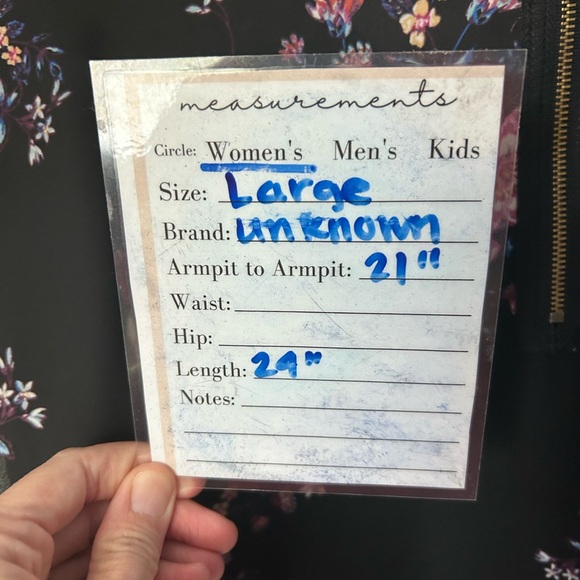 measurements
Circle: Women's Men's Kids
Size: Large
Brand: unknown
Armpit to Armpit: 21"
Waist:
Hip:
Length: 24"
Notes: